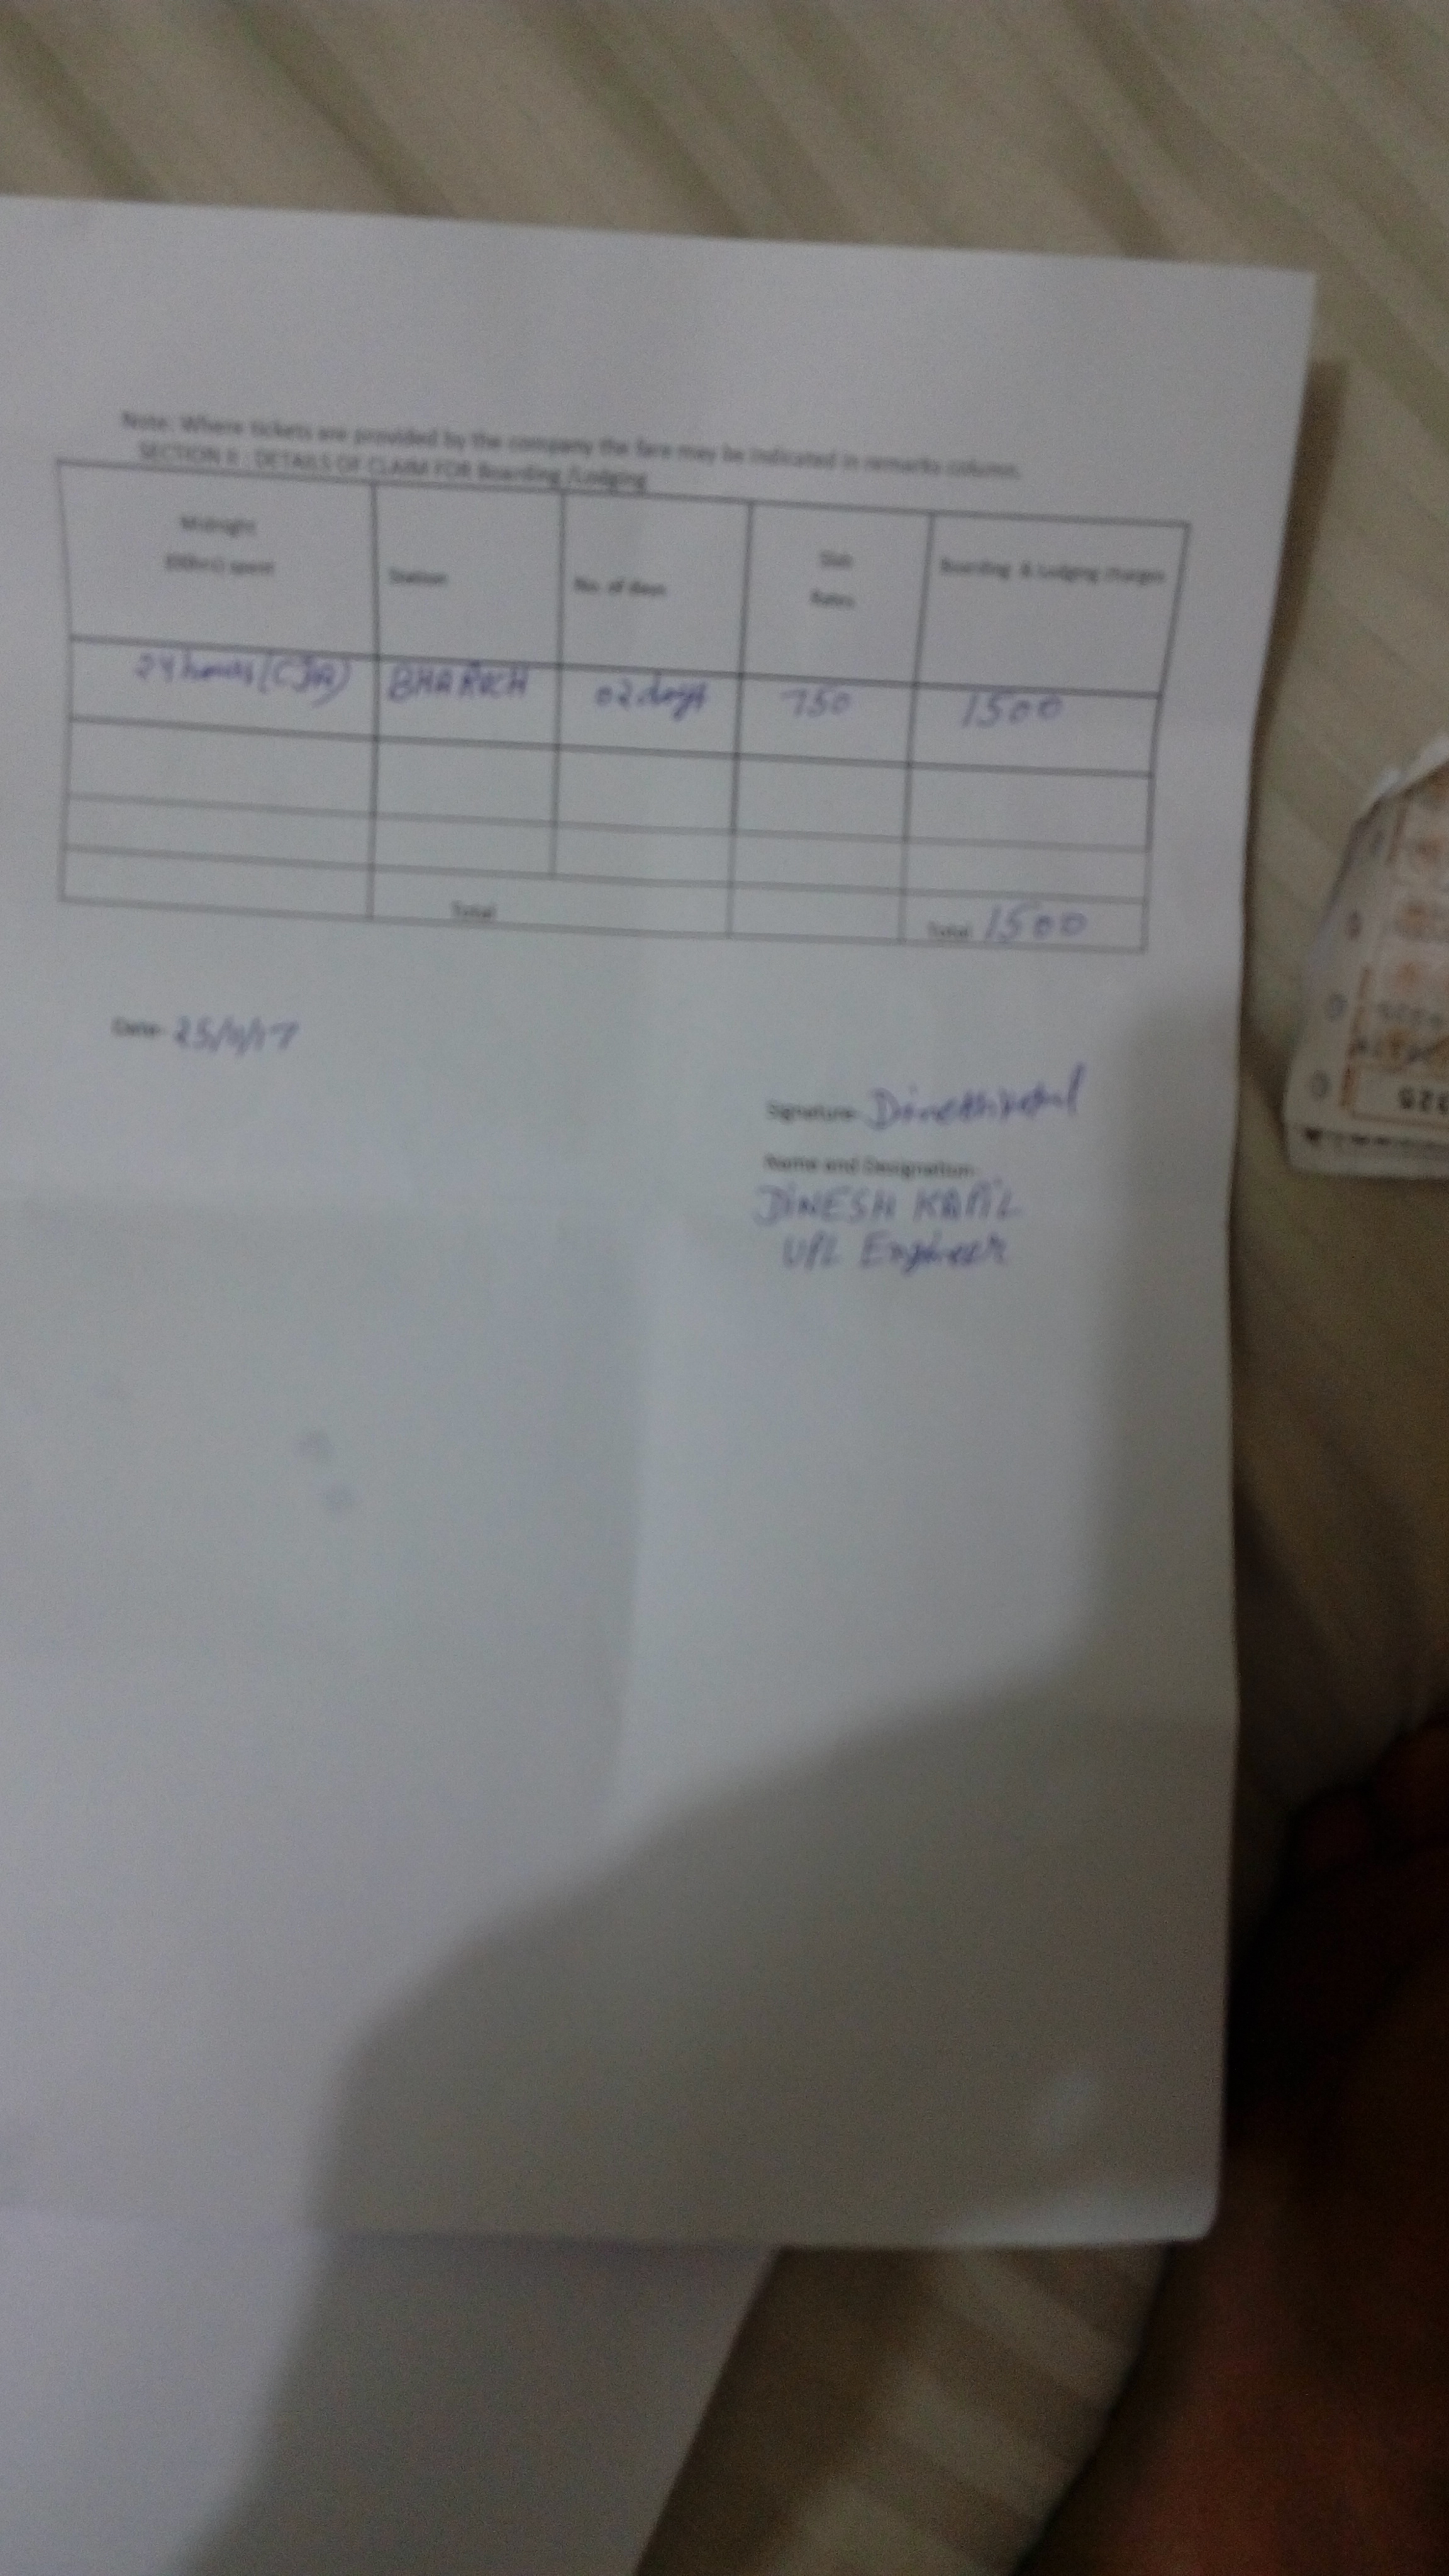 Note: Where tickets are provided by the company the fare may be indicated in remarks column.
SECTION II : DETAILS OF CLAIM FOR Boarding /Lodging
Midnight
spent
Station
No. of days
Slab
Rates
Boarding & Lodging charges
24 hours (CJA)
BHARUCH
02 days
750
1500
Total
Total 1500
Date- 25/11/17
Signature- Dineshkapil
Name and Designation-
DINESH KAPIL
UPL Engineer